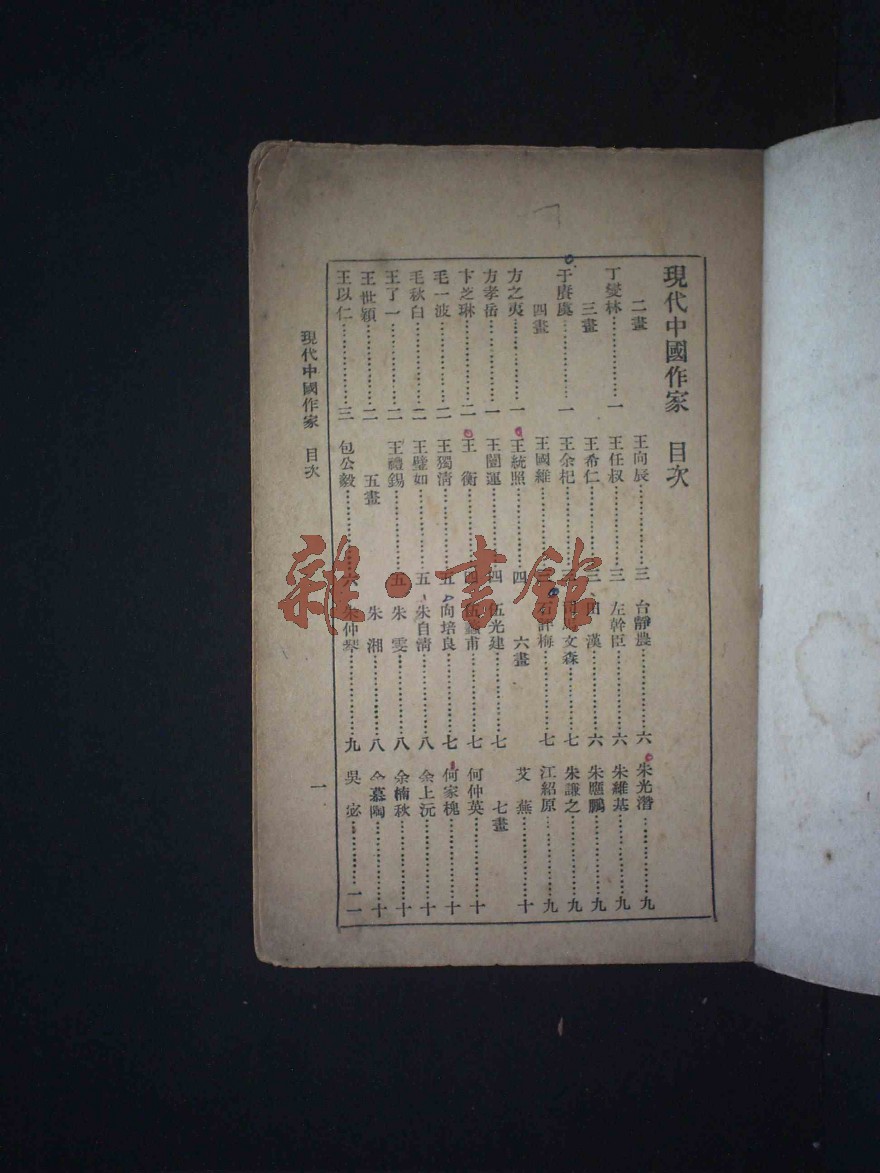 現代中國作家　目次
二畫
丁燮林……………一
三畫
于賡虞……………一
四畫
方之夷……………一
方孝岳……………一
卞芝琳……………二
毛一波……………二
毛秋白……………二
王了一……………二
王世穎……………二
王以仁……………三
王向辰……………三
王任叔……………三
王希仁……………三
王余杞……………三
王國維……………三
王統照……………四
王闓運……………四
王　衡……………四
王獨清……………五
王璧如……………五
王禮錫……………五
五畫
包公毅……………六
台靜農……………六
左幹臣……………六
田　漢……………六
文森……………七
石評梅……………七
六畫
伍光建……………七
伍蠡甫……………七
向培良……………七
朱自清……………八
朱　雯……………八
朱　湘……………八
朱仲琴……………九
朱光潛……………九
朱維基……………九
朱應鵬……………九
朱謙之……………九
江紹原……………九
艾　蕪……………十
七畫
何仲英……………十
何家槐……………十
余上沅……………十
余楠秋……………十
余慕陶……………十
吳　宓……………一一
現代中國作家　目次
一
雜·書館